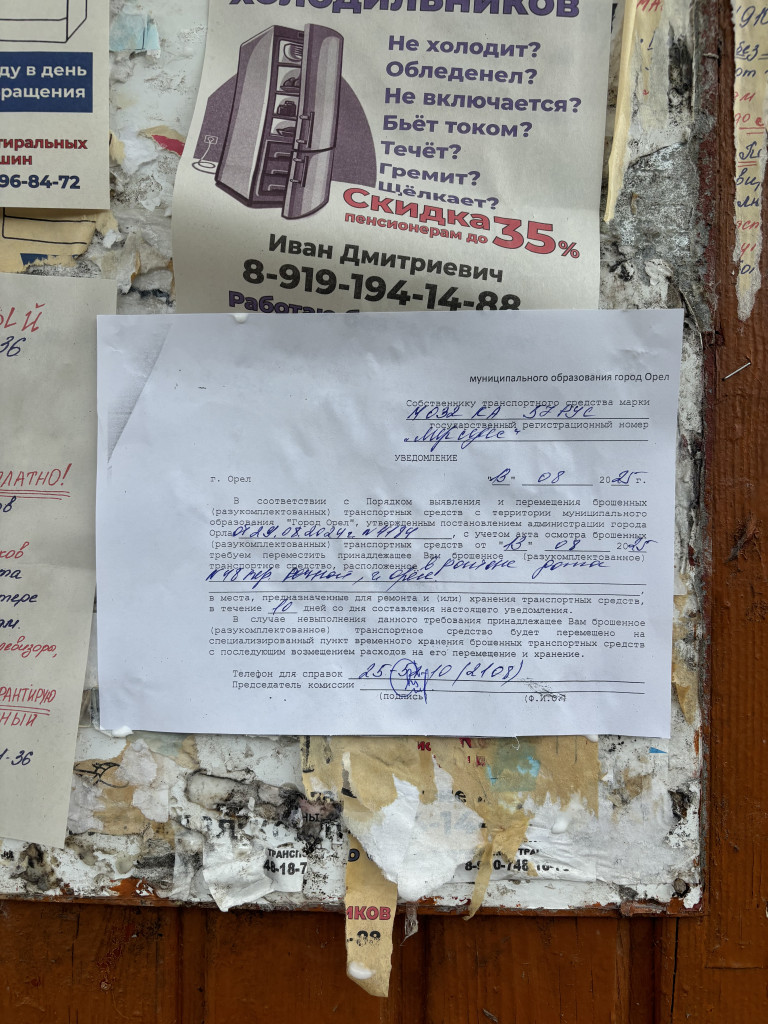 ХОЛОДИЛЬНИКОВ
Не холодит?
Обледенел?
Не включается?
Бьёт током?
Течёт?
Гремит?
Щёлкает?
Скидка 35%
пенсионерам до
Иван Дмитриевич
8-919-194-14-88
ду в день
ращения
тиральных
шин
96-84-72
ЫЙ
36
ЛАТНО!
тере
евизора,
РАНТИРУЮ
НЫЙ
1-36
муниципального образования город Орел
Собственнику транспортного средства марки
М 032 КА 57 РУС
государственный регистрационный номер
„Мерседес“
УВЕДОМЛЕНИЕ
г. Орел "13" 08 2025 г.
В соответствии с Порядком выявления и перемещения брошенных
(разукомплектованных) транспортных средств с территории муниципального
образования "Город Орел", утвержденным постановлением администрации города
Орла от 29.08.2024 г. №4184, с учетом акта осмотра брошенных
(разукомплектованных) транспортных средств от "13" 08 2025
требуем переместить принадлежащее Вам брошенное (разукомплектованное)
транспортное средство, расположенное в районе дома
№48 пер. Речной, г. Орел,
в места, предназначенные для ремонта и (или) хранения транспортных средств,
в течение 10 дней со дня составления настоящего уведомления.
В случае невыполнения данного требования принадлежащее Вам брошенное
(разукомплектованное) транспортное средство будет перемещено на
специализированный пункт временного хранения брошенных транспортных средств
с последующим возмещением расходов на его перемещение и хранение.
Телефон для справок 25-52-10 (2108)
Председатель комиссии
(подпись) (Ф.И.О.)
ТРАНСП
48-18-7
ТРАН
ИКОВ